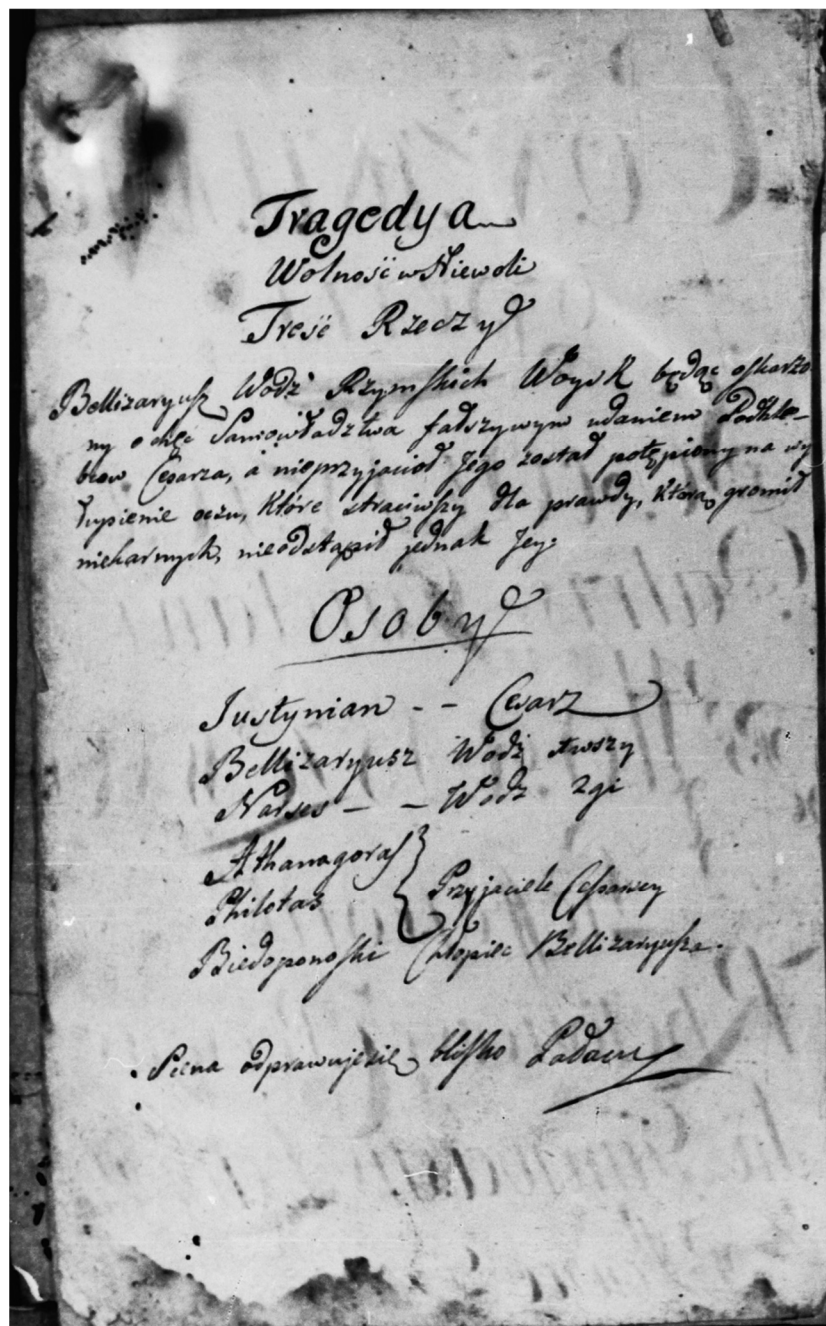 Tragedya
Wolność w Niewoli
Treść Rzeczy
Bellizaryusz Wódz Rzymskich Woysk będąc oskarżo
ny o chęć Samowładztwa fałszywym udaniem Podchle-
bcow Cesarza, a nieprzyjacioł Jego został potępiony na wy
łupienie oczu, które straciwszy dla prawdy, którą gromił
niekarnych, nieodstąpił jednak Jey.
Osoby
Justynian - - Cesarz
Bellizaryusz Wódz 1wszy
Narses - - Wodz 2gi
Athanagoras
Philotas } Przyjaciele Cesarscy
Biedoponoski Chłopiec Bellizaryusza.
Scena odprawuje się blisko